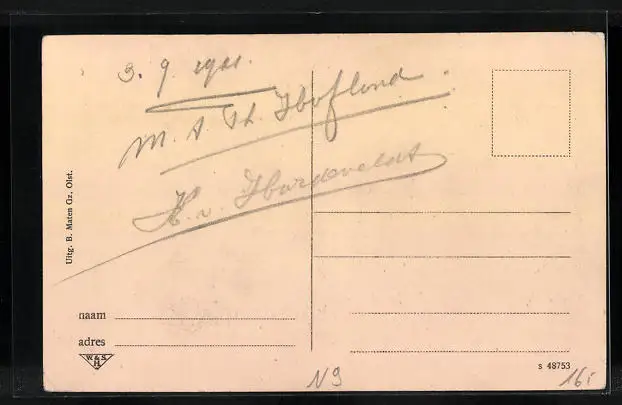 3. 9. 1901.
M. A. Th. Hofland.
H. v.
Uitg. B. Maten Gz. Olst.
naam
adres
W & S
H
s 48753
N9
16,-